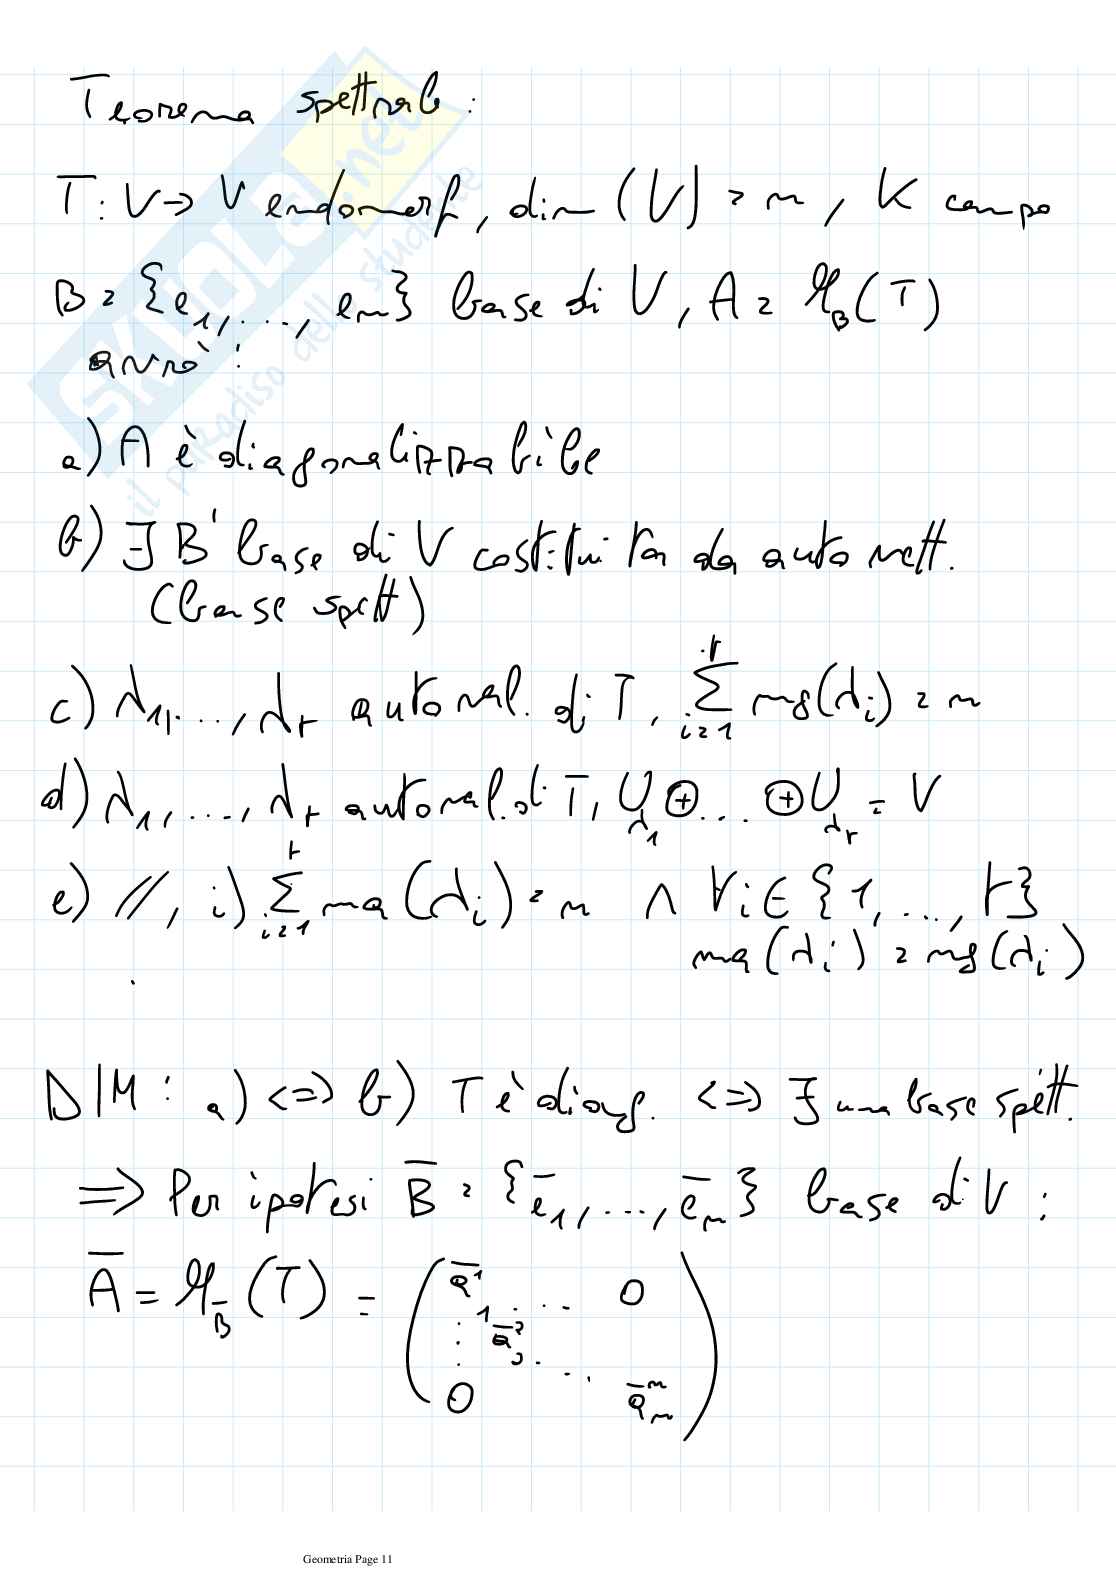 Teorema spettrale:
T: V → V endomorf, dim (V) = n, K campo
B = {e₁, ..., eₙ} base di V, A = M_B(T)
avrò:
a) A è diagonalizzabile
b) ∃ B' base di V costituita da autovett.
(base spett)
c) λ₁, ..., λᵣ autoval. di T, ∑ᵢ₌₁ʳ mg(λᵢ) = n
d) λ₁, ..., λᵣ autoval. di T, U_λ₁ ⊕ ... ⊕ U_λᵣ = V
e) //, i) ∑ᵢ₌₁ʳ ma(λᵢ) = n ∧ ∀i ∈ {1, ..., r}
ma(λᵢ) = mg(λᵢ)
DIM: a) <=> b) T è diag. <=> ∃ una base spett.
=> Per ipotesi B̅ = {e̅₁, ..., e̅ₙ} base di V:
A̅ = M_B̅(T) = ( a̅¹₁ ... 0
⋮ a̅²₂ ...
0 a̅ⁿₙ )
Geometria Page 11
SKUOLA.net
il paradiso dello studente